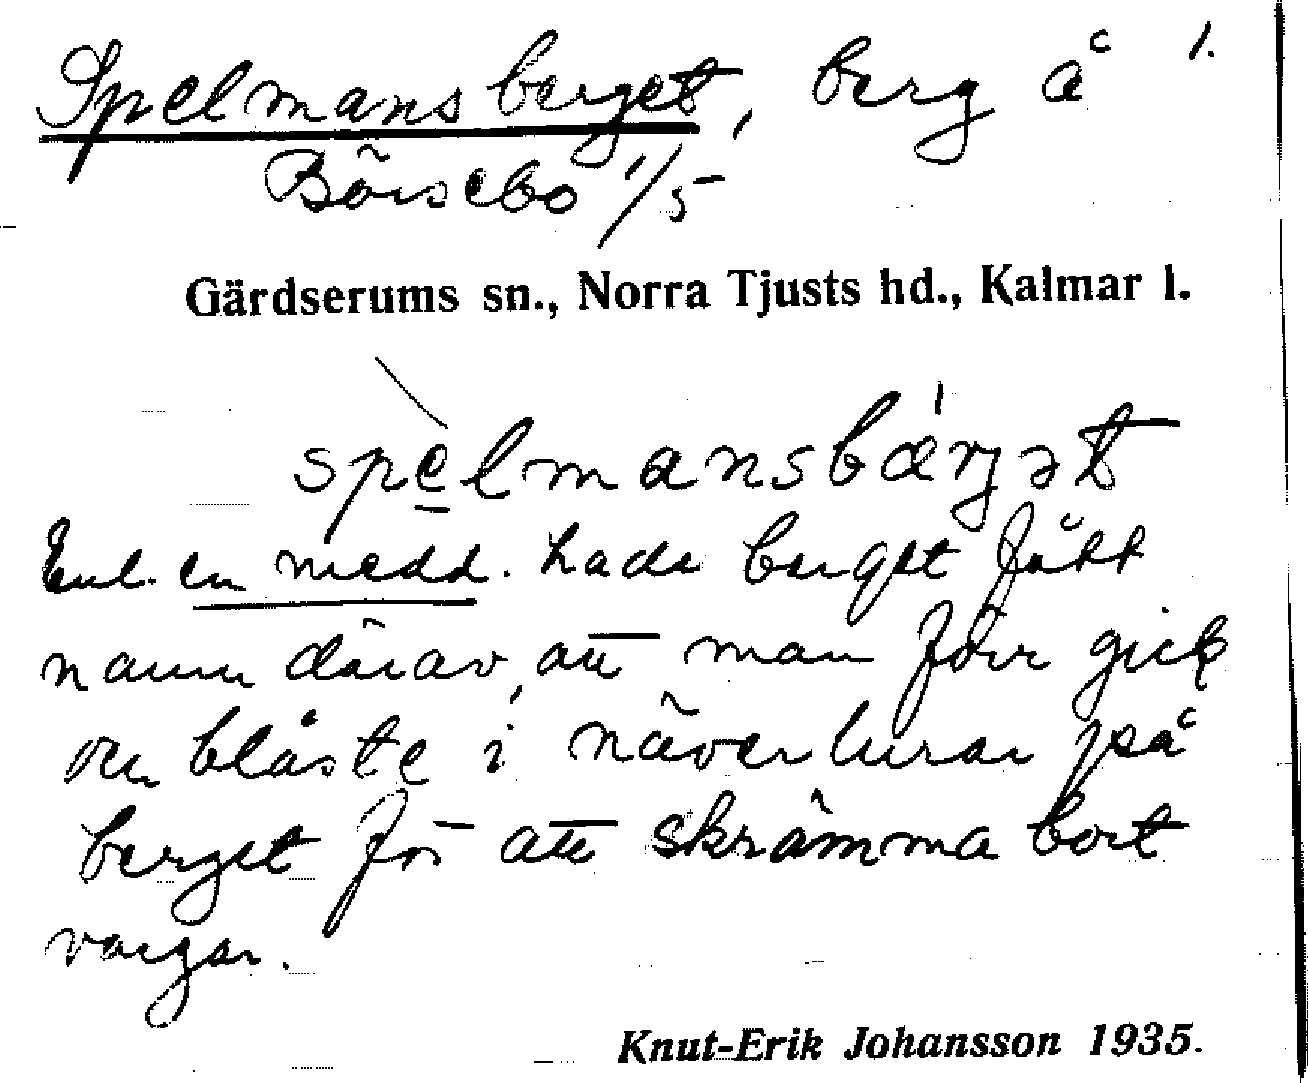 Spelmansberget, berg å 1.
Börsebo 1/5
Gärdserums sn., Norra Tjusts hd., Kalmar l.
spelmansbærjət
Enl. en medd. hade berget fått
namn därav, att man förr gick
och blåste i näverlurar på
berget för att skrämma bort
vargar.
Knut-Erik Johansson 1935.